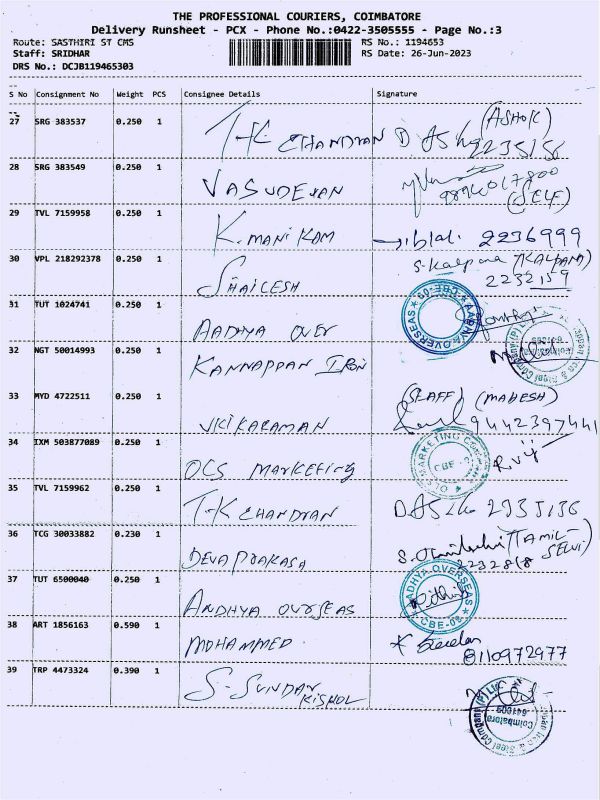 THE PROFESSIONAL COURIERS, COIMBATORE
Delivery Runsheet - PCX - Phone No.:0422-3505555 - Page No.:3
Route: SASTHIRI ST CMS RS No.: 1194653
Staff: SRIDHAR RS Date: 26-Jun-2023
DRS No.: DCJB119465303
S No Consignment No Weight PCS Consignee Details Signature
27 SRG 383537 0.250 1 T-K CHANDRAN (ASHOK)
2235156
28 SRG 383549 0.250 1 VASUDEVAN 9894017800
(SELF)
29 TVL 7159958 0.250 1 K. MANIKAM 2236999
30 VPL 218292378 0.250 1 SHAILESH S. Kalpana (KALPANA)
2232159
31 TUT 1024741 0.250 1 AADHYA OVER
AARIN OVERSEAS CBE-09
32 NGT 50014993 0.250 1 KANNAPPAN IRON
Iron & Steel Company (P) Ltd. Coimbatore 641009
33 MYD 4722511 0.250 1 VKIKARAMAN (STAFF) (MAHESH)
9442397441
34 IXM 503877089 0.250 1 OCS MARKETING
MARKETING CBE
35 TVL 7159962 0.250 1 T-K CHANDRAN 2235156
36 TCG 30033882 0.230 1 DEVAPRAKASA (TAMIL-
SELVI)
37 TUT 6500040 0.250 1 ANDHYA OVERSEAS
AADHYA OVERSEAS CBE-09
38 ART 1856163 0.590 1 MOHAMMED
8110972977
39 TRP 4473324 0.390 1 S-SUNDAR
KISHOL
Iron & Steel Company (P) Ltd. Coimbatore 641009